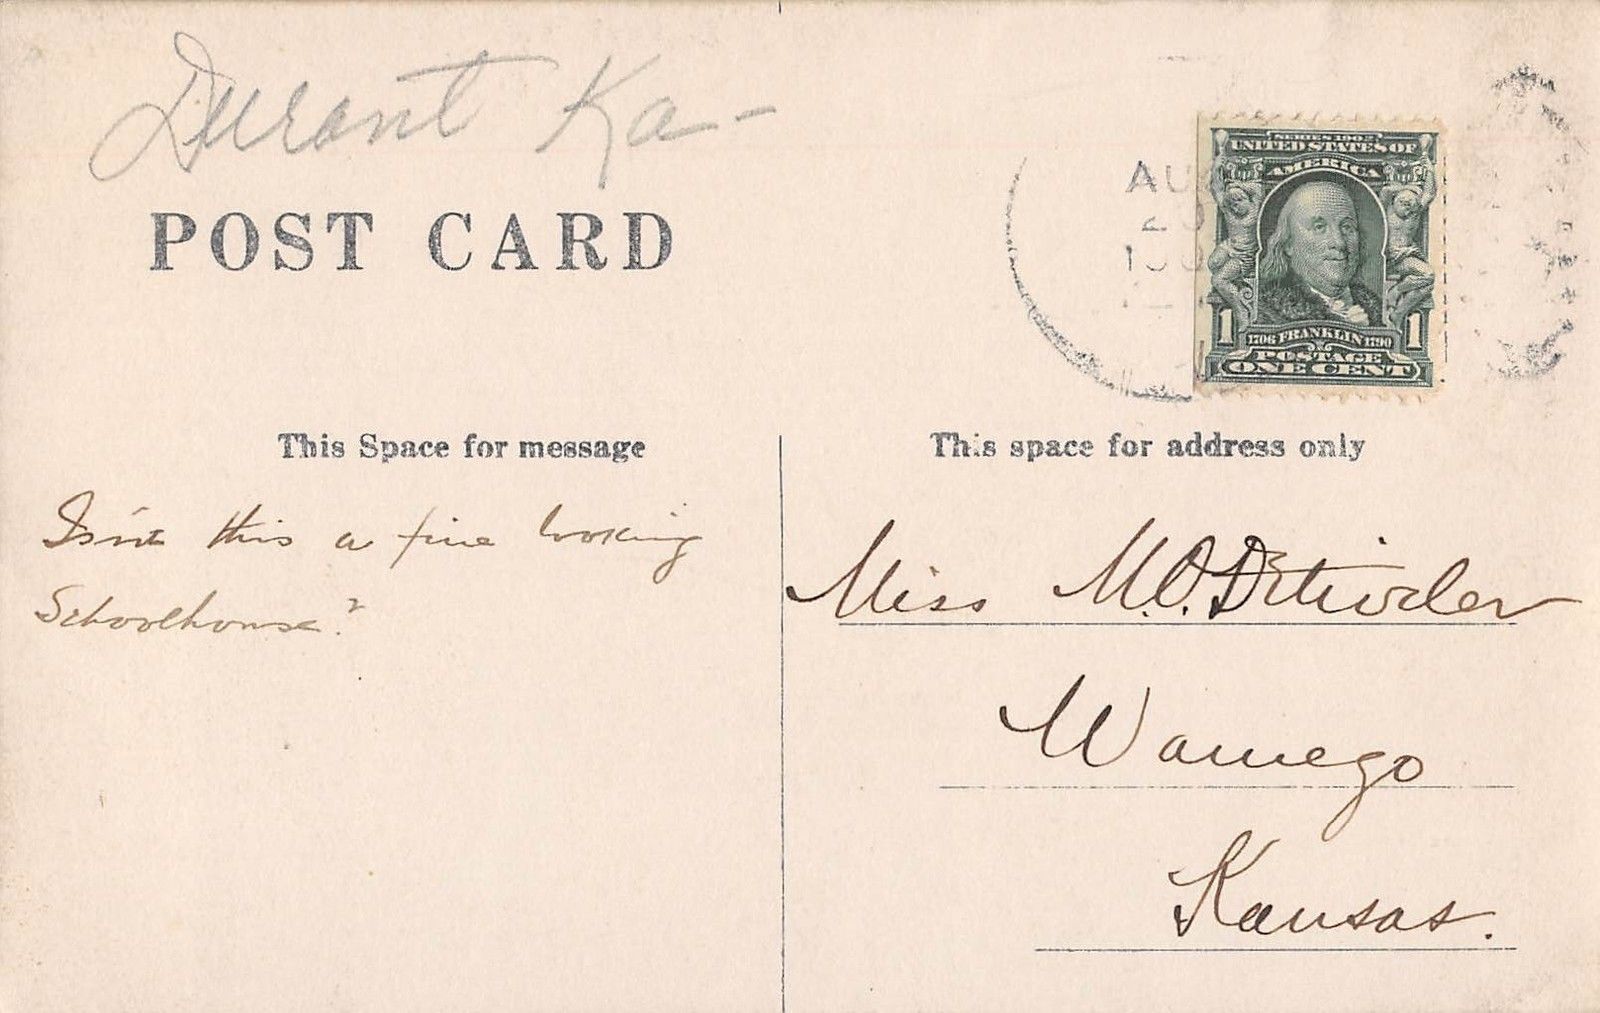 Durant Ka-
POST CARD
AU
20
SERIES 1902
UNITED STATES OF
AMERICA
1 1706 FRANKLIN 1790 1
POSTAGE
ONE CENT
This Space for message
Isn't this a fine looking
Schoolhouse?
This space for address only
Miss M.O.
Wamego
Kansas.